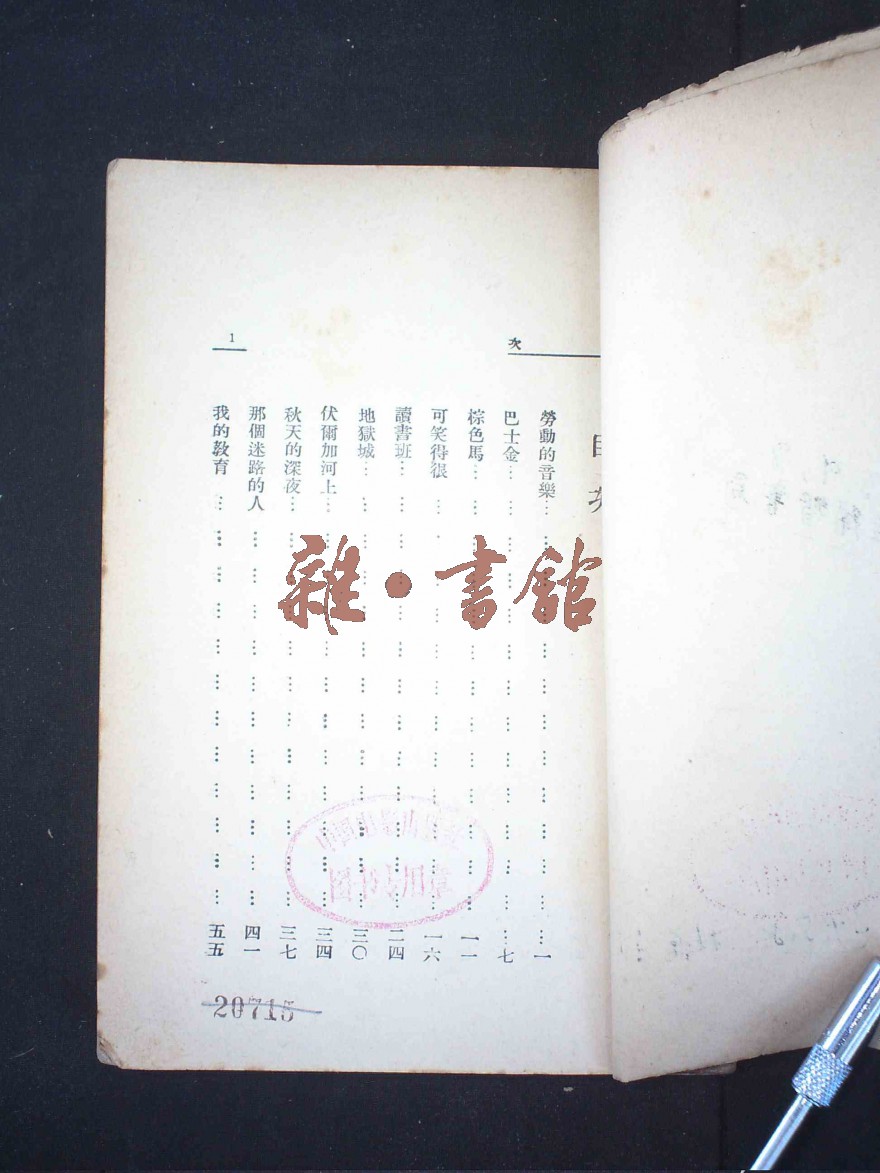 次
1
目次
勞動的音樂…………一
巴士金…………七
棕色馬…………一一
可笑得很…………一六
讀書班…………二四
地獄城…………三〇
伏爾加河上…………三四
秋天的深夜…………三七
那個迷路的人…………四一
我的教育…………五五
雜·書館
20715